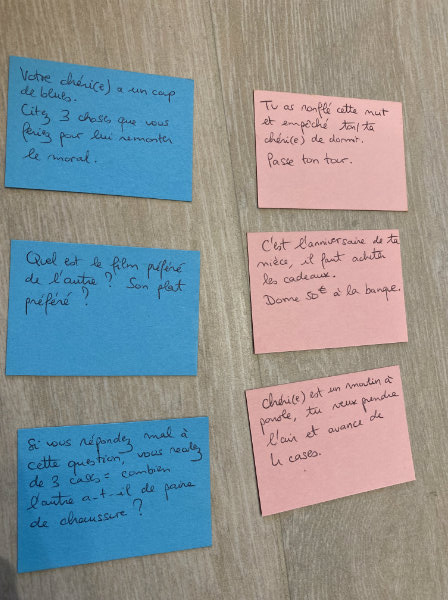 Votre chéri(e) a un coup
de blues.
Citez 3 choses que vous
feriez pour lui remonter
le moral.
Quel est le film préféré
de l'autre ? Son plat
préféré ?
Si vous répondez mal à
cette question, vous reculez
de 3 cases = combien
l'autre a-t-il de paire
de chaussure ?
Tu as ronflé cette nuit
et empêché ton/ta
chéri(e) de dormir.
Passe ton tour.
C'est l'anniversaire de ta
nièce, il faut acheter
les cadeaux.
Donne 50€ à la banque.
Chéri(e) est un moulin à
parole, tu veux prendre
l'air et avance de
4 cases.